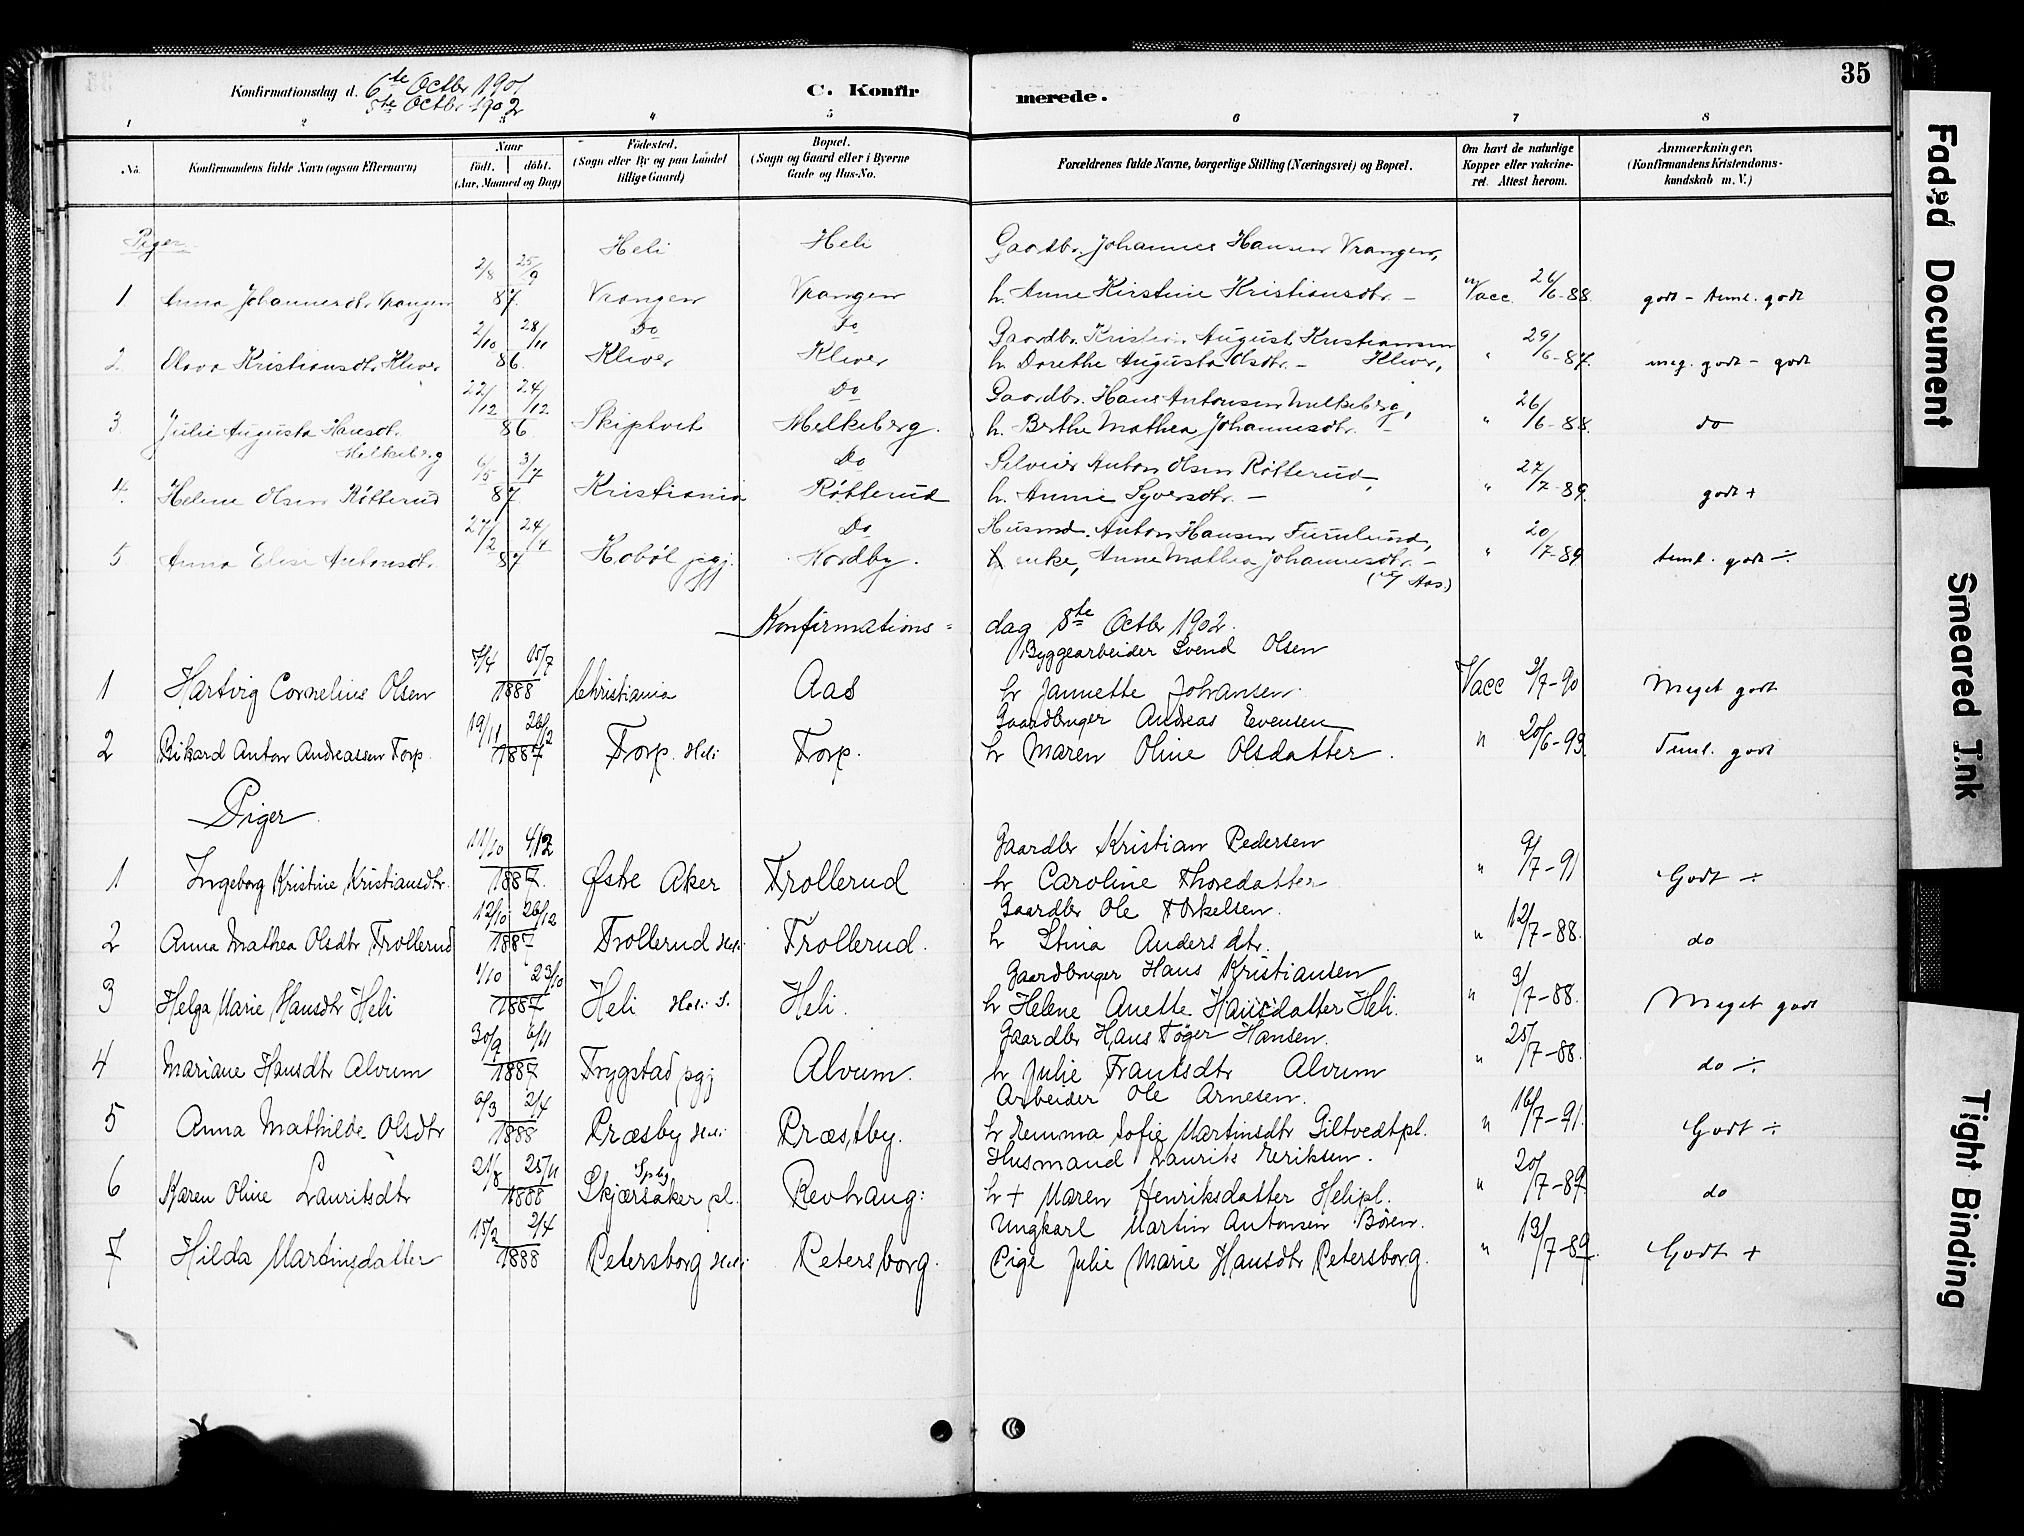 35
Konfirmationsdag d. 6te Octbr 1901
5te Octbr 1902
C. Konfirmerede.
1 2 3 4 5 6 7 8
No.
Konfirmandens fulde Navn (ogsaa Efternavn)
Naar
Født. døbt.
(Aar, Maaned og Dag)
Fødested.
(Sogn eller By og paa Landet
tillige Gaard)
Bopæl.
(Sogn og Gaard eller i Byerne
Gade og Hus-No.
Forældrenes fulde Navne, borgerlige Stilling (Næringsvei) og Bopæl.
Om havt de naturlige
Kopper eller vakcineret. Attest herom.
Anmærkninger.
(Konfirmandens Kristendomskundskab m. V.)
Piger
Heli Heli Gaardbr. Johannes Hansen Vrangen,
1 Anna Johannesdtr. Vrangen 2/8 25/9 87. Vrangen Vrangen h. Anne Kirstine Kristiansdtr. – Vacc. 26/6-88. godt - teml. godt
Do Do Gaardbr. Kristian August Kristiansen
2. Olava Kristiansdtr. Kliver 2/10 28/11 86. Kliver Kliver h. Dorethe Augusta Olsdtr. – Kliver, " 29/6-87. meg. godt - godt
Do Gaardbr. Hans Antonsen Melkeberg,
3 Julie Augusta Hansdtr. Melkeberg 22/12 24/12 86 Skiptvet Melkeberg. h. Berthe Mathea Johannesdtr. – " 26/6-88. do
Do Selveier Anton Olsen Røtterud,
4. Helene Olsen Røtterud 6/5 3/7 87 Kristiania Røtterud h. Annie Syversdtr. – " 27/7-89. godt +
Do Husmd. Anton Hansen Furulund,
5 Anna Elise Antonsdtr. 27/2 24/4 87 Hobøl pgj. Nordby. enke, Anne Mathea Johannesdtr. – " 20/7-89 teml. godt ÷
Aas)
Konfirmationsdag 5te Octbr 1902.
Byggearbeider Svend Olsen
1 Hartvig Cornelius Olsen 7/4 15/7 1888 Christiania Aas h Jannette Johansen. Vacc 3/7-90 Meget godt
Gaardbruger Andreas Evensen
2 Rikard Anton Andreassen Torp 19/11 26/12 1887 Torp. Heli Torp. h Maren Oline Olsdatter. " 20/6-93. Teml. godt
Piger
Gaardbr Kristian Pedersen
1 Ingeborg Kristine Kristiansdtr. 11/10 4/12 1887. Østre Aker Trollerud h Caroline Thoredatter " 9/7-91 Godt ÷
Gaardbr Ole Torkelsen.
2 Anna Mathea Olsdtr Trollerud 12/10 26/12 1887 Trollerud Heli Trollerud. h Stina Andersdtr. " 12/7-88. do
Gaardbruger Hans Kristiansen
3 Helga Marie Hansdtr Heli 1/10 23/10 1887 Heli Heli S. Heli. h Helene Anette Hansdatter Heli. " 3/7-88. Meget godt
Gaardbr Hans Tøger Hansen.
4 Mariane Hansdtr Alvum 30/9 6/11 1887 Trygstad pgj Alvum. h Julie Frantsdtr Alvum " 25/7-88. do ÷
Arbeider Ole Arnesen.
5 Anna Mathilde Olsdtr 6/3 2/4 1888 Præsby Heli Præstby. h Emma Sofie Martinsdtr Giltvedtpl. " 16/7-91. Godt ÷
Husmand Laurits Eriksen.
6 Karen Oline Lauritsdtr 21/8 25/11 1888 Skjærsaker pl. Spbg Revhaug: h + Maren Henriksdatter Helipl. " 20/7-89. do
Ungkarl Martin Antonsen Bøien.
7 Hilda Martinsdatter 15/2 2/4 1888 Petersborg Heli Petersborg. Pige Julie Marie Hansdtr Petersborg. " 13/7-89. Godt +
Faded Document
Smeared Ink
Tight Binding